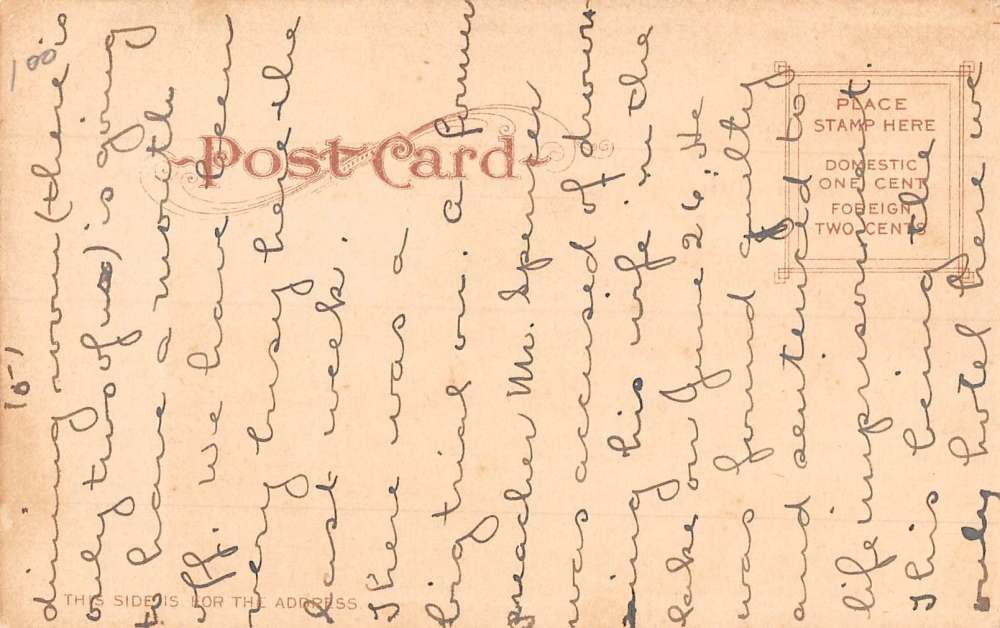 100
15-1
Post Card
PLACE
STAMP HERE
DOMESTIC
ONE CENT
FOREIGN
TWO CENTS
THIS SIDE IS FOR THE ADDRESS
dining room (there is
only two of us) is going
to have a month
off. We have been
very busy here the
last week.
There was a
big trial on. A former
preacher Mr. Spencer
was accused of drown
ing his wife in the
lake on June 26. He
was found guilty
and sentenced to
life imprisonment.
This being the
only hotel here we